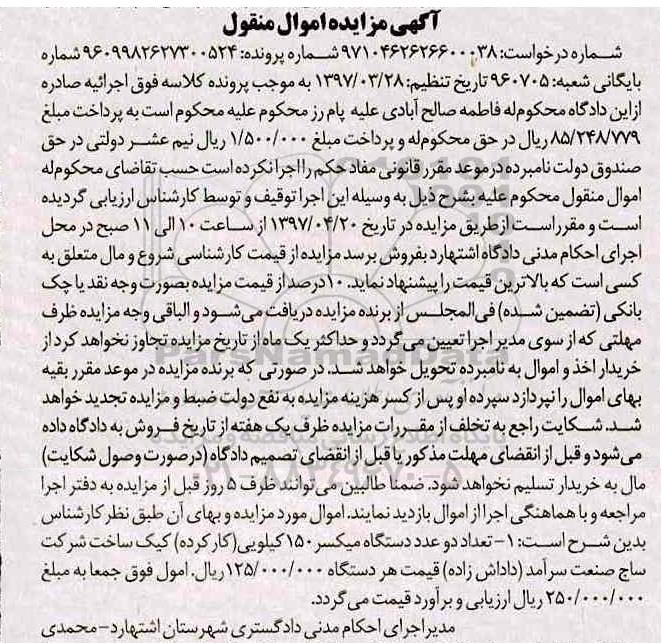 آگهی مزایده اموال منقول
شماره درخواست: ۹۷۱۰۴۶۲۶۲۶۶۰۰۰۳۸ شماره پرونده: ۹۶۰۹۹۸۲۶۲۷۳۰۰۵۲۴ شماره
بایگانی شعبه: ۹۶۰۷۰۵ تاریخ تنظیم: ۱۳۹۷/۰۳/۲۸ به موجب پرونده کلاسه فوق اجرائیه صادره
از این دادگاه محکوم‌له فاطمه صالح آبادی علیه پام رز محکوم علیه محکوم است به پرداخت مبلغ
۸۵/۲۴۸/۷۷۹ ریال در حق محکوم‌له و پرداخت مبلغ ۱/۵۰۰/۰۰۰ ریال نیم عشر دولتی در حق
صندوق دولت نامبرده در موعد مقرر قانونی مفاد حکم را اجرا نکرده است حسب تقاضای محکوم‌له
اموال منقول محکوم علیه بشرح ذیل به وسیله این اجرا توقیف و توسط کارشناس ارزیابی گردیده
است و مقرر است از طریق مزایده در تاریخ ۱۳۹۷/۰۴/۲۰ از ساعت ۱۰ الی ۱۱ صبح در محل
اجرای احکام مدنی دادگاه اشتهارد بفروش برسد مزایده از قیمت کارشناسی شروع و مال متعلق به
کسی است که بالاترین قیمت را پیشنهاد نماید. ۱۰درصد از قیمت مزایده بصورت وجه نقد یا چک
بانکی (تضمین شده) فی‌المجلس از برنده مزایده دریافت می‌شود و الباقی وجه مزایده ظرف
مهلتی که از سوی مدیر اجرا تعیین می‌گردد و حداکثر یک ماه از تاریخ مزایده تجاوز نخواهد کرد از
خریدار اخذ و اموال به نامبرده تحویل خواهد شد. در صورتی که برنده مزایده در موعد مقرر بقیه
بهای اموال را نپردازد سپرده او پس از کسر هزینه مزایده به نفع دولت ضبط و مزایده تجدید خواهد
شد. شکایت راجع به تخلف از مقررات مزایده ظرف یک هفته از تاریخ فروش به دادگاه داده
می‌شود و قبل از انقضای مهلت مذکور یا قبل از انقضای تصمیم دادگاه (در صورت وصول شکایت)
مال به خریدار تسلیم نخواهد شود. ضمنا طالبین می‌توانند ظرف ۵ روز قبل از مزایده به دفتر اجرا
مراجعه و با هماهنگی اجرا از اموال بازدید نمایند. اموال مورد مزایده و بهای آن طبق نظر کارشناس
بدین شرح است: ۱- تعداد دو عدد دستگاه میکسر ۱۵۰ کیلویی(کار کرده) کیک ساخت شرکت
ساج صنعت سرآمد (داداش زاده) قیمت هر دستگاه ۱۲۵/۰۰۰/۰۰۰ریال. امول فوق جمعا به مبلغ
۲۵۰/۰۰۰/۰۰۰ ریال ارزیابی و برآورد قیمت می گردد.
مدیر اجرای احکام مدنی دادگستری شهرستان اشتهارد- محمدی
ParsNamadData
پایگاه اطلاع رسانی مناقصه و مزایده